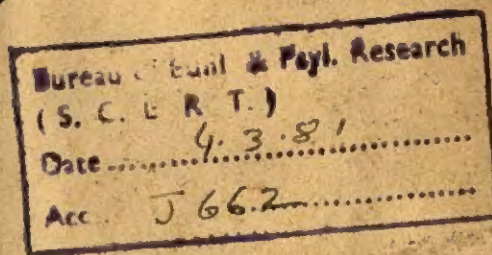 Bureau of Eunl & Psyl. Research
(S. C. E R T.)
Date ........ 4. 3. 81 ........
Acc. J 662 ........